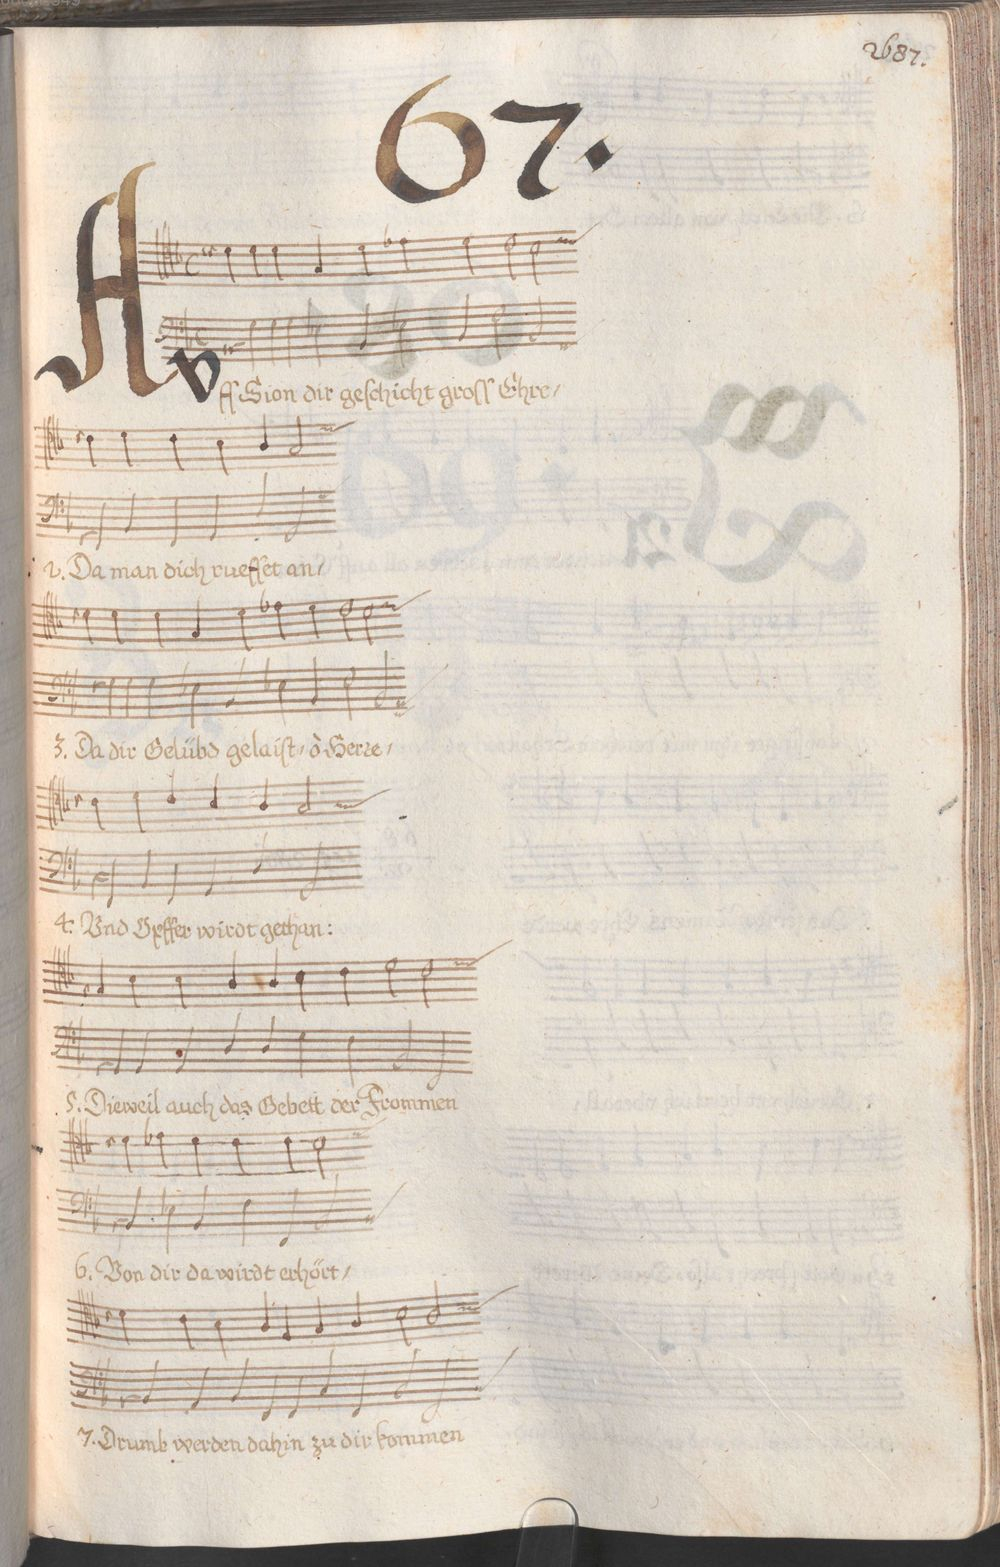 287.
67.
Avff Sion dir geschicht gross Ehre/
2. Da man dich rueffet an/
3. Da dir Gelübd gelaist/ ô Herre/
4. Vnd Opffer wirdt gethan:
5. Dieweil auch das Gebett der Frommen
6. Von dir da wirdt erhört/
7. Drumb werden dahin zu dir kommen